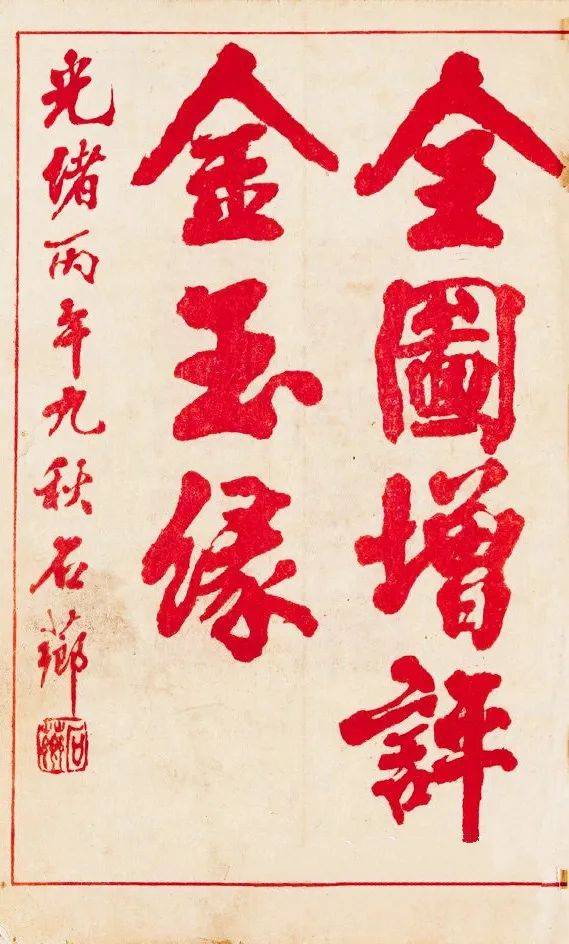 全圖增評
金玉緣
光緒丙午九秋石薌
石薌